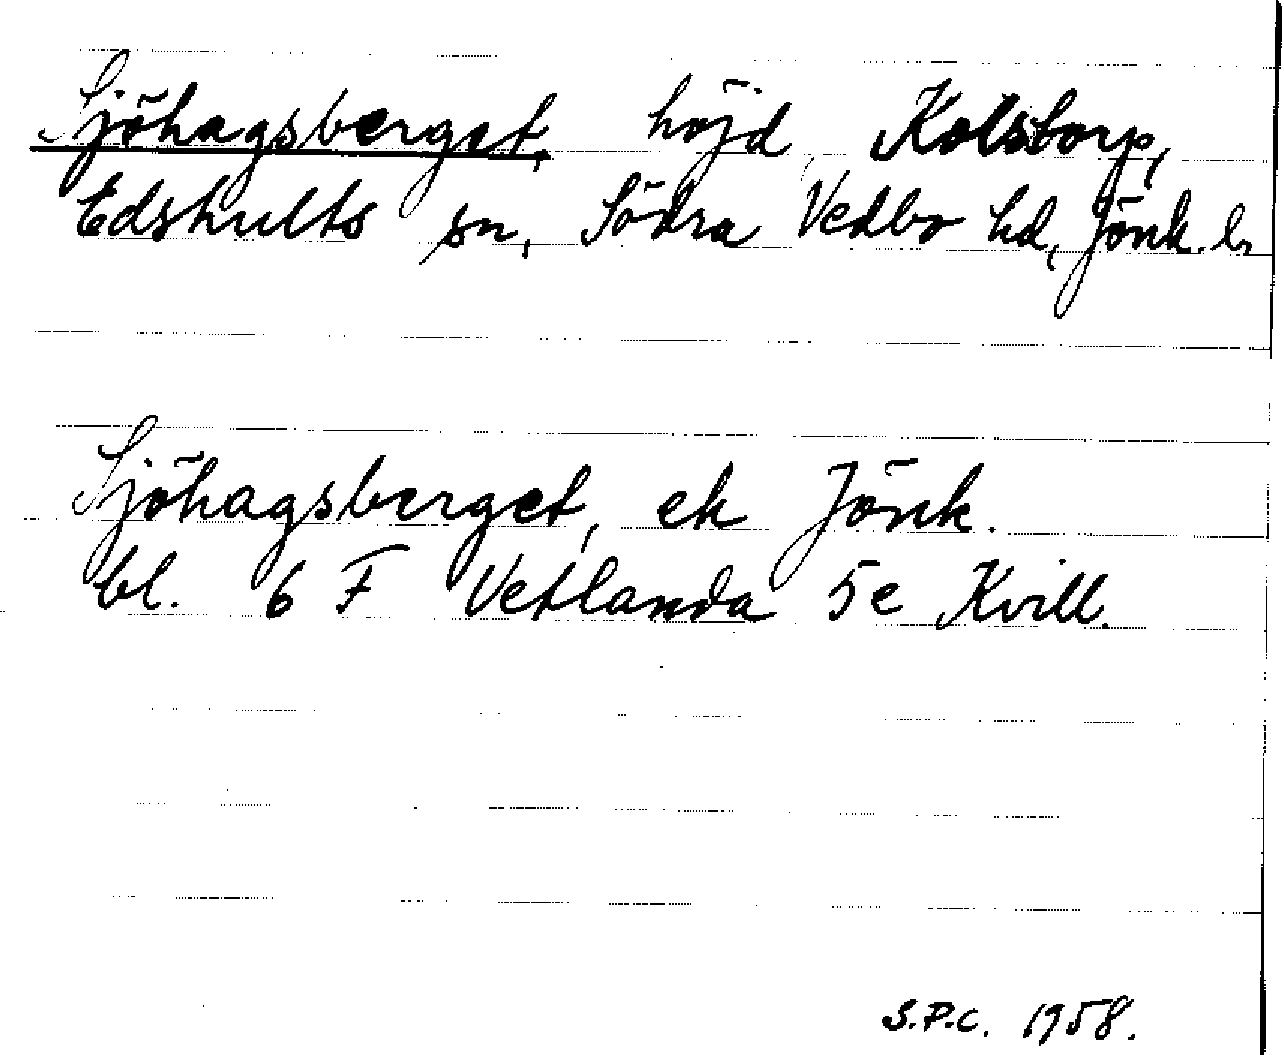 Sjöhagsberget, höjd, Kolstorp,
Edshults sn, Södra Vedbo hd, Jönk. ln
Sjöhagsberget, ek Jönk.
bl. 6 F Vetlanda 5e Kvill.
S.P.C. 1958.